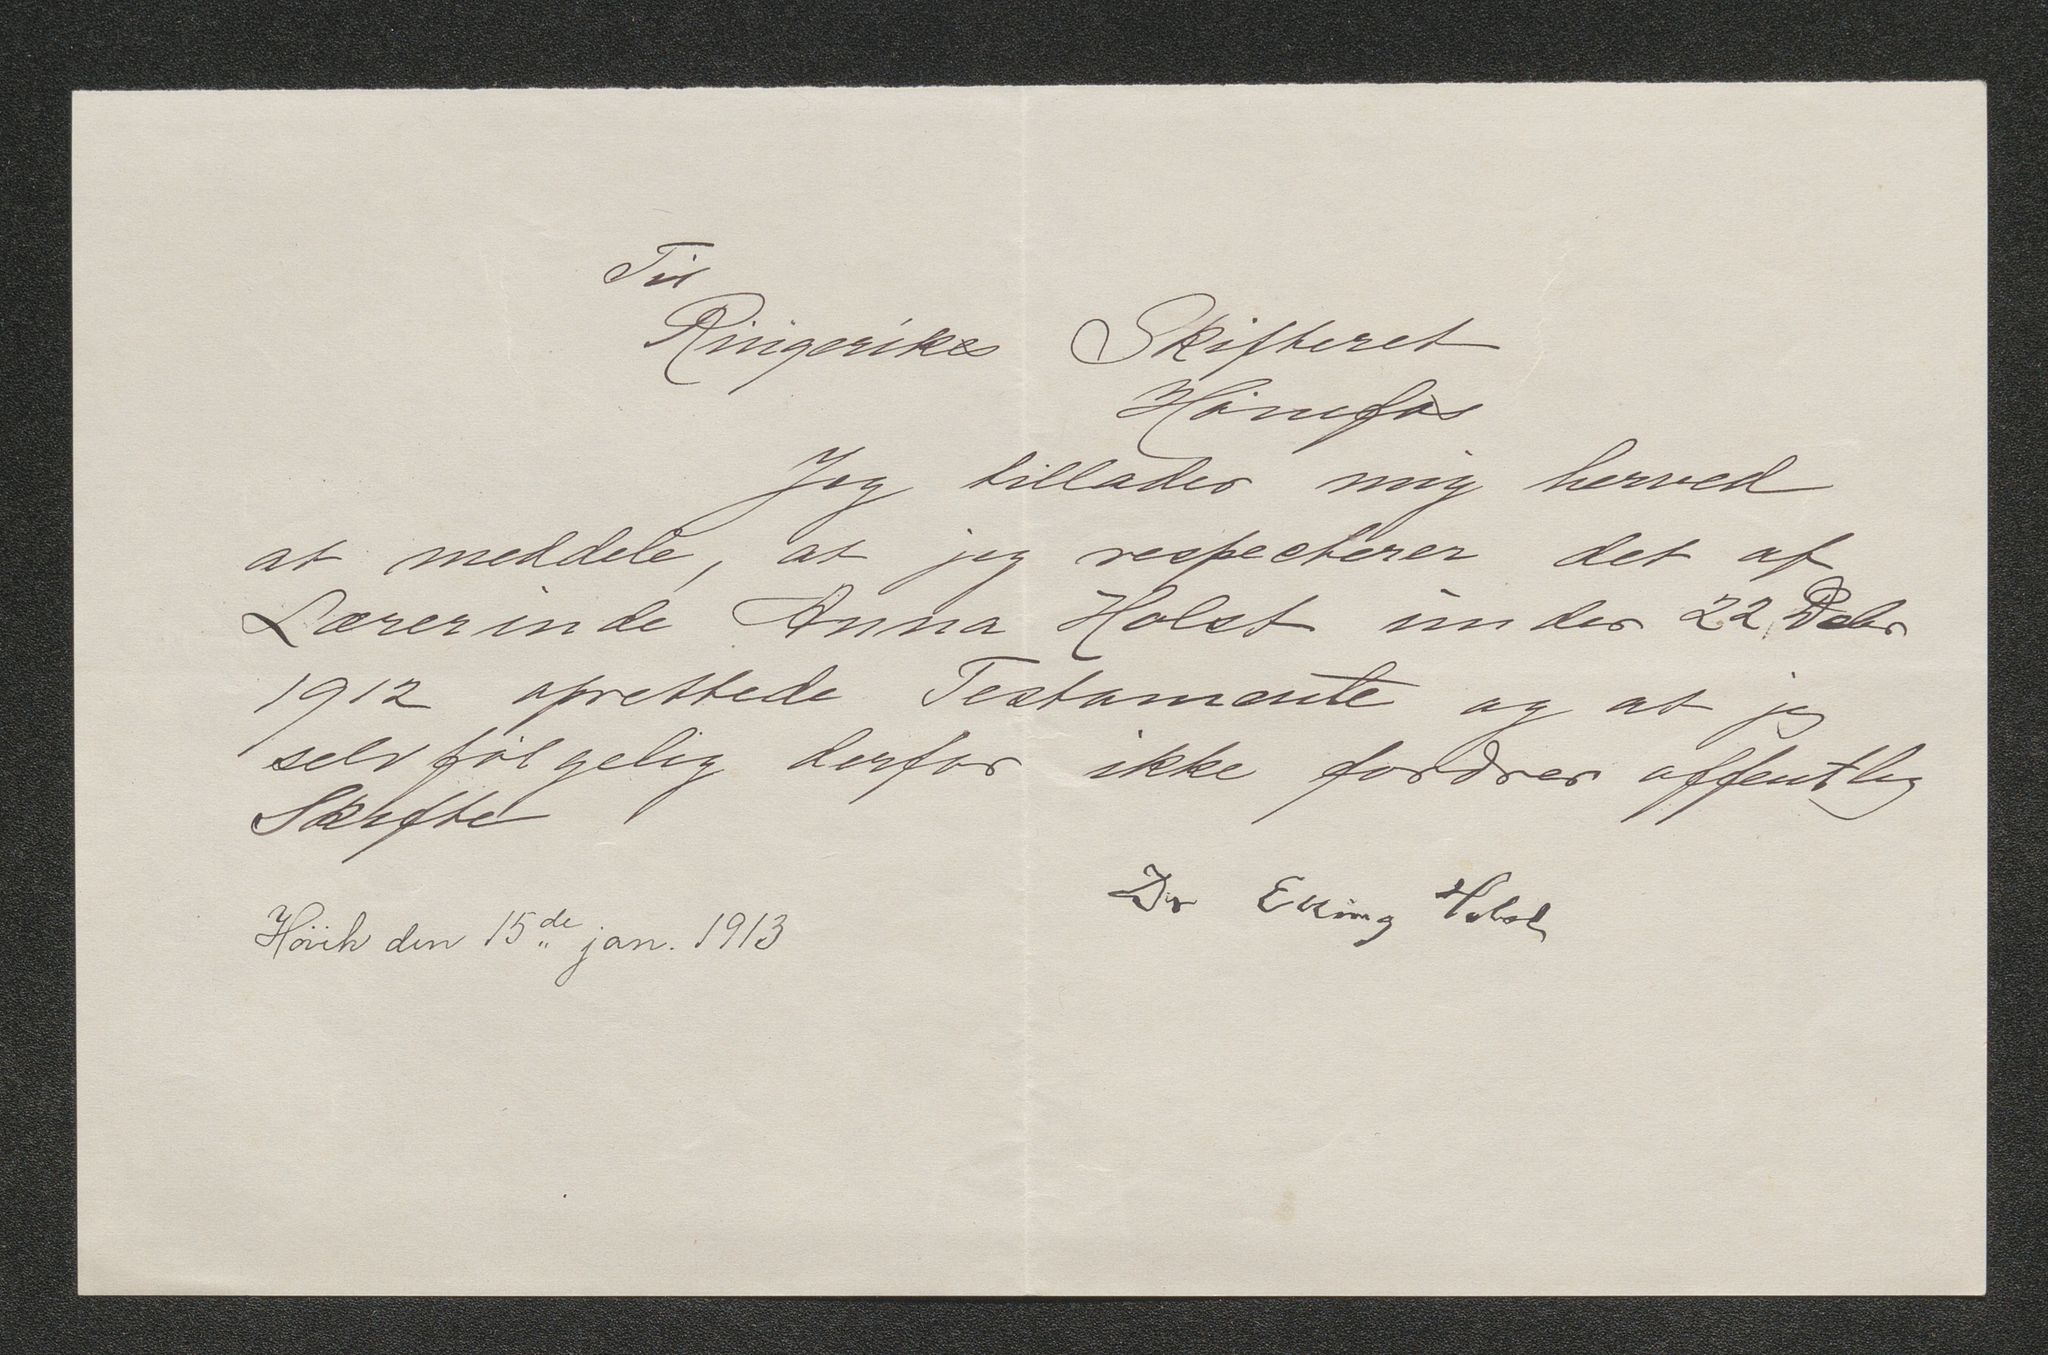 Til
Ringerikes Skifteret
Hønefos
Jeg tillader mig herved
at meddele, at jeg respecterer det af
Lærerinde Anna Holst under 22 Debr
1912 oprettede Testamente og at jeg
selvfølgelig derfor ikke fordrer offentlig
Skifte
Dr Elling Holst
Høvik den 15de jan. 1913